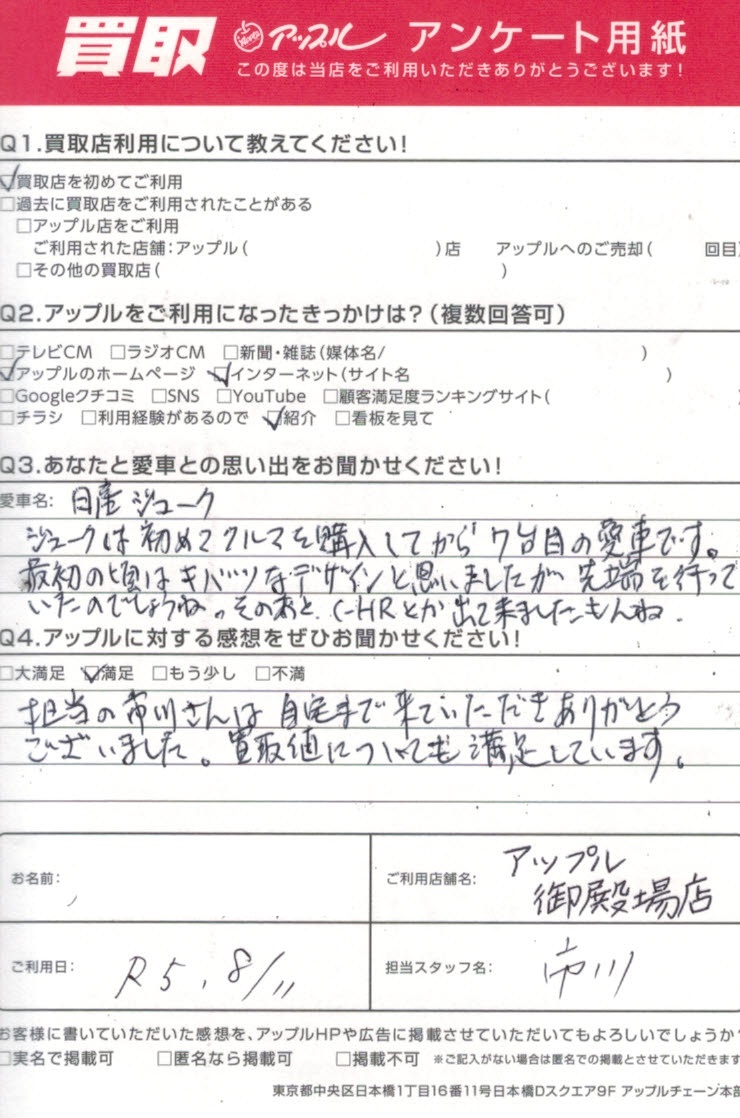 買取 アップル アンケート用紙
この度は当店をご利用いただきありがとうございます!
Q1.買取店利用について教えてください!
☑買取店を初めてご利用
□過去に買取店をご利用されたことがある
□アップル店をご利用
ご利用された店舗:アップル( )店 アップルへのご売却( 回目
□その他の買取店( )
Q2.アップルをご利用になったきっかけは?(複数回答可)
□テレビCM □ラジオCM □新聞・雑誌(媒体名/ )
☑アップルのホームページ ☑インターネット(サイト名 )
□Googleクチコミ □SNS □YouTube □顧客満足度ランキングサイト( )
□チラシ □利用経験があるので ☑紹介 □看板を見て
Q3.あなたと愛車との思い出をお聞かせください!
愛車名: 日産ジューク
ジュークは初めてクルマを購入してから7台目の愛車です。
最初の頃はキバツなデザインと思いましたが先端を行って
いたのでしょうね。そのあと、C-HRとか出て来ましたもんね.
Q4.アップルに対する感想をぜひお聞かせください!
□大満足 ☑満足 □もう少し □不満
担当の市川さんは自宅まで来ていただきありがとう
ございました。買取値についても満足しています。
お名前:
ご利用店舗名: アップル
御殿場店
ご利用日: R5.8/11
担当スタッフ名: 市川
お客様に書いていただいた感想を、アップルHPや広告に掲載させていただいてもよろしいでしょうか?
□実名で掲載可 □匿名なら掲載可 □掲載不可 ※ご記入がない場合は匿名での掲載とさせていただきます
東京都中央区日本橋1丁目16番11号日本橋Dスクエア9F アップルチェーン本部